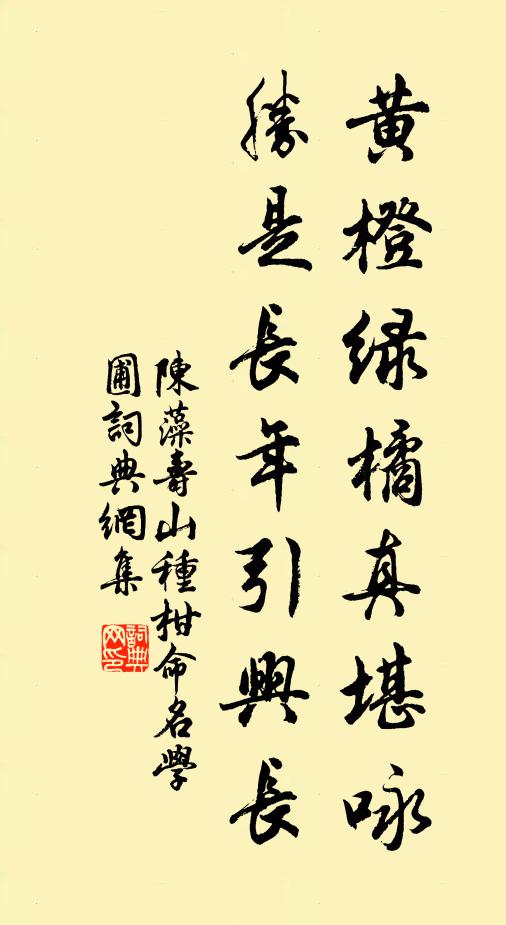 黄橙绿橘真堪咏
勝是長年引興長
陳藻壽山種柑命名學
圃詞典網集
詞典
网印